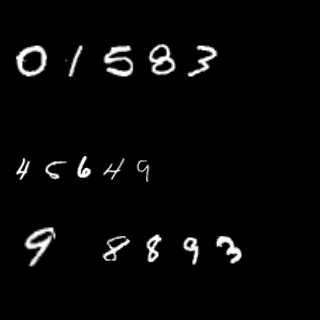 01583
45649
9 8893